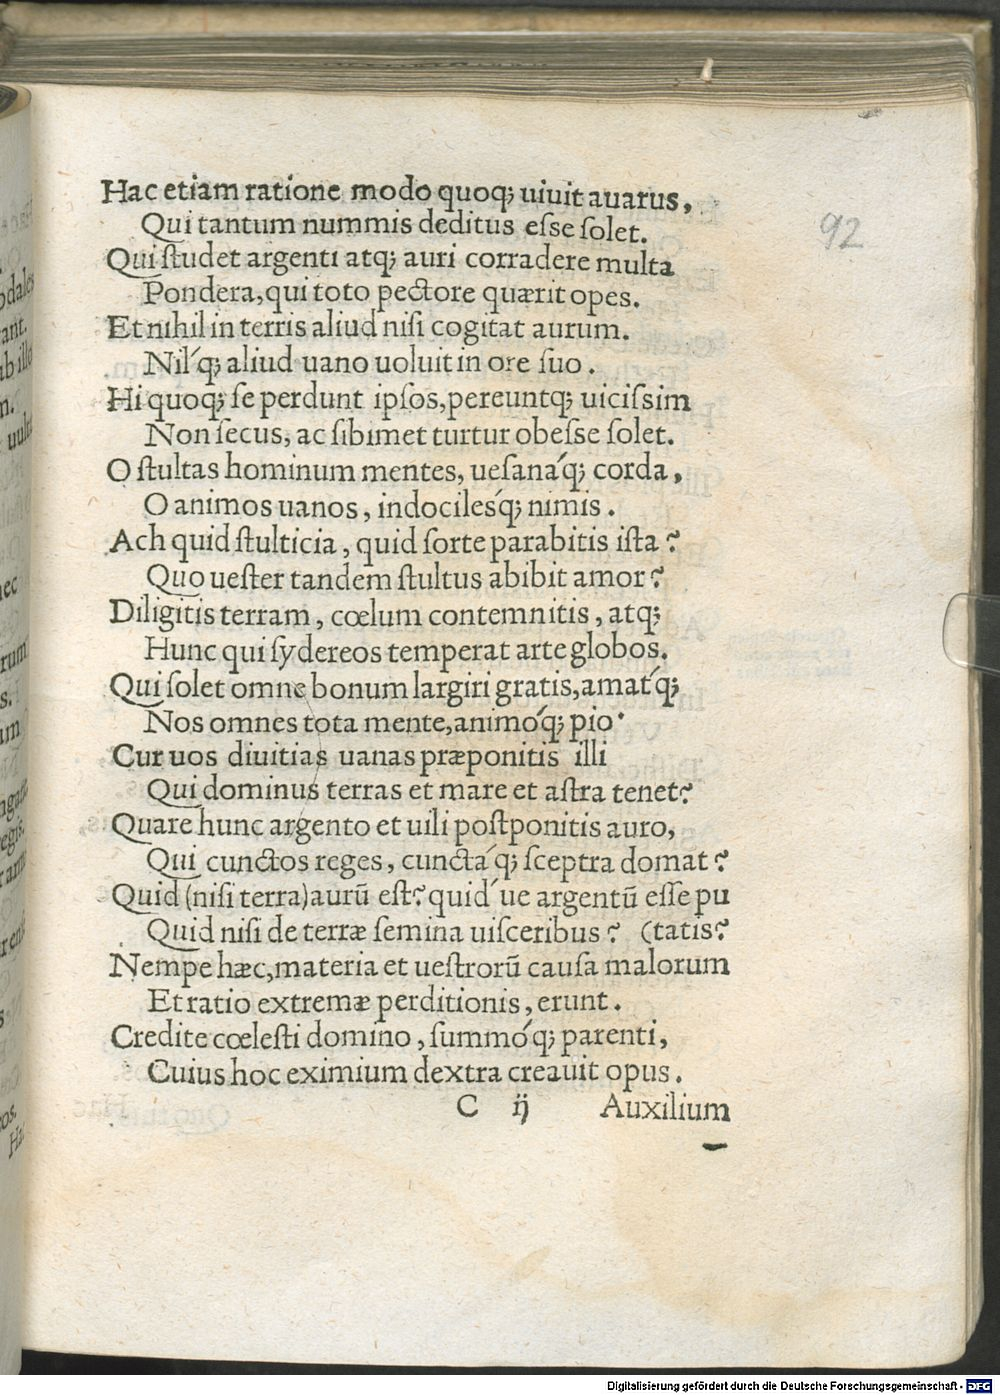 Hac etiam ratione modo quoq; uiuit auarus,
Qui tantum nummis deditus esse solet.
Qui studet argenti atq; auri corradere multa
Pondera, qui toto pectore quærit opes.
Et nihil in terris aliud nisi cogitat aurum.
Nil´q; aliud uano uoluit in ore suo.
Hi quoq; se perdunt ipsos, pereuntq; uicissim
Non secus, ac sibimet turtur obesse solet.
O stultas hominum mentes, uesaná´q; corda,
O animos uanos, indocilés´q; nimis.
Ach quid stulticia, quid sorte parabitis ista?
Quo uester tandem stultus abibit amor?
Diligitis terram, cœlum contemnitis, atq;
Hunc qui sydereos temperat arte globos.
Qui solet omne bonum largiri gratis, amat´q;
Nos omnes tota mente, animó´q; pio·
Cur uos diuitias uanas præponitis illi
Qui dominus terras et mare et astra tenet?
Quare hunc argento et uili postponitis auro,
Qui cunctos reges, cunctá´q; sceptra domat?
Quid (nisi terra) aurū est? quid´ue argentū esse pu
Quid nisi de terræ semina uisceribus? (tatis?
Nempe hæc, materia et uestrorū causa malorum
Et ratio extremæ perditionis, erunt.
Credite cœlesti domino, summó´q; parenti,
Cuius hoc eximium dextra creauit opus.
C ij Auxilium
92
Digitalisierung gefördert durch die Deutsche Forschungsgemeinschaft - DFG